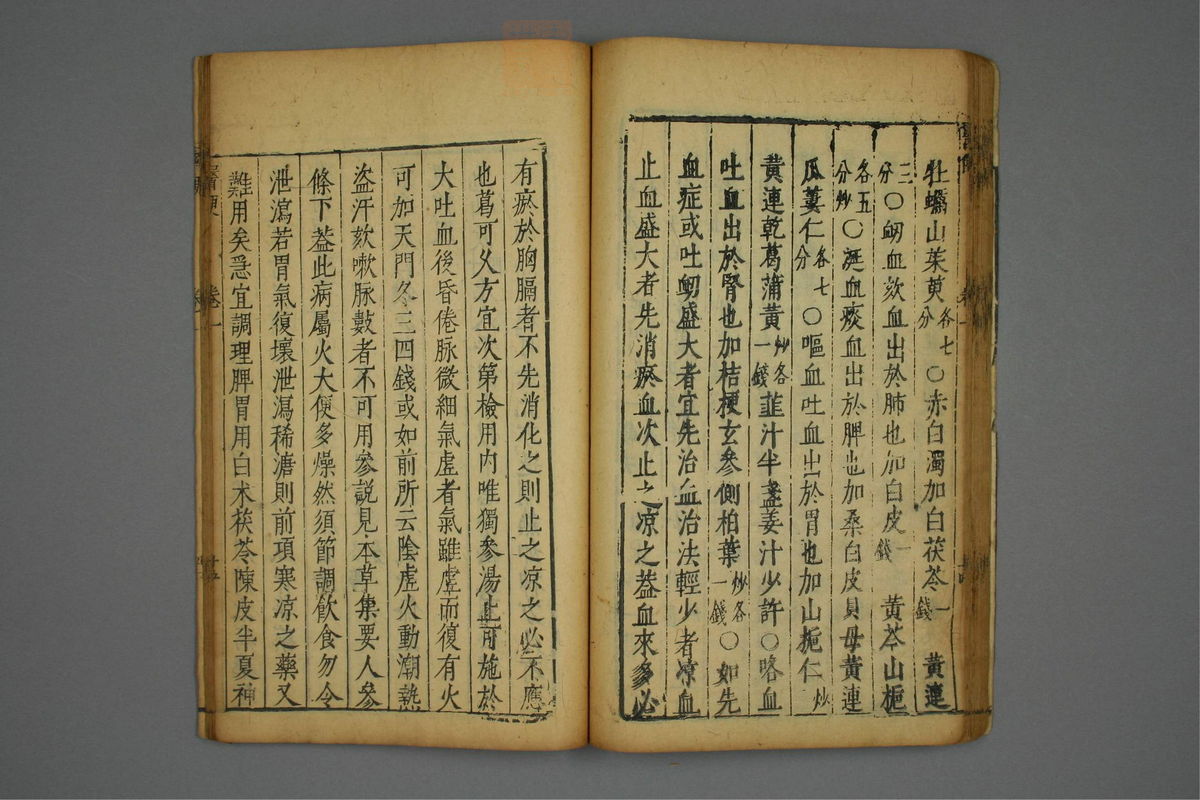 牡蠣山茱萸各七分○赤白濁加白茯苓一錢黃連
三分○衂血欬血出於肺也加白皮一錢黃芩山梔
各五分炒○涎血痰血出於脾也加桑白皮貝母黃連
瓜蔞仁各七分○嘔血吐血出於胃也加山梔仁炒
黃連乾葛蒲黃炒各一錢韮汁半盞姜汁少許○咯血
吐血出於腎也加桔梗玄參側栢葉炒各一錢○如先
血症或吐衂盛大者宜先治血治法輕少者凉血
止血盛大者先消瘀血次止之凉之葢血來多必
有瘀於胸膈者不先消化之則止之凉之必不應
也葛可久方宜次第檢用内唯獨參湯止可施於
大吐血後昏倦脉微細氣虛者氣雖虛而復有火
可加天門冬三四錢或如前所云陰虛火動潮熱
盗汗欬嗽脉數者不可用參説見本草集要人參
條下葢此病屬火大便多燥然須節調飲食勿令
泄瀉若胃氣復壞泄瀉稀溏則前項寒凉之藥又
難用矣急宜調理脾胃用白术茯苓陳皮半夏神
卷一